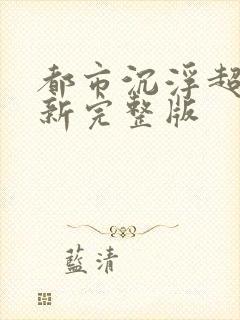 都市沉浮超
新完整版
藍清